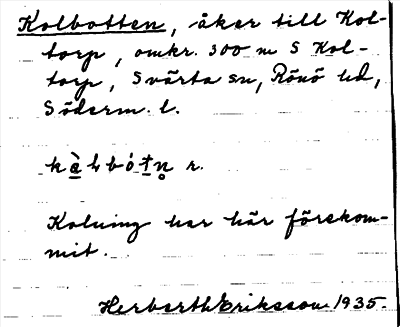 Kolbotten, åker till Kol-
torp, omkr. 300 m S Kol-
torp, Svärta sn, Rönö hd,
Söderm. l.
r.
Kolning har här förekom-
mit.
Herbert Eriksson 1935.